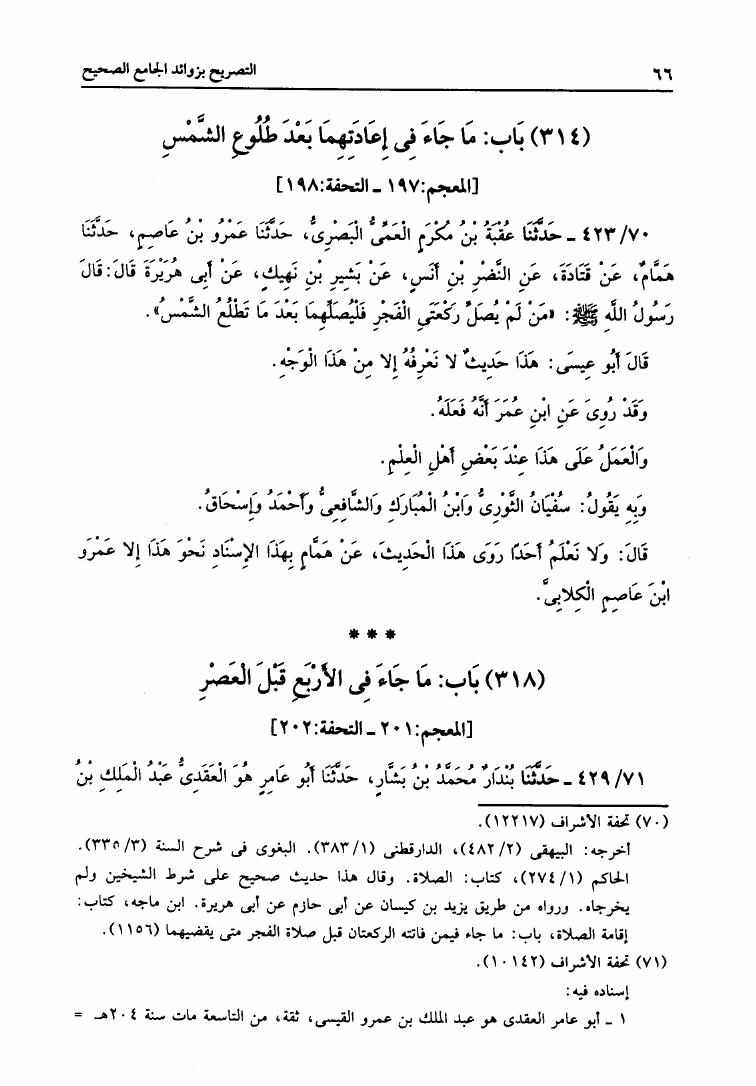 ٦٦
التصريح بزوائد الجامع الصحيح
(٣١٤) بَاب: مَا جَاءَ فِى إِعَادَتِهِمَا بَعْدَ طُلُوعِ الشَّمْسِ
[المعجم:١٩٧ ـ التحفة:١٩٨]
٤٢٣/٧٠ ـ حَدَّثَنَا عُقْبَةُ بْنُ مُكْرَمٍ الْعَمِّىُّ الْبَصْرِىُّ، حَدَّثَنَا عَمْرُو بْنُ عَاصِمٍ، حَدَّثَنَا
هَمَّامٌ، عَنْ قَتَادَةَ، عَنِ النَّضْرِ بْنِ أَنَسٍ، عَنْ بَشِيرِ بْنِ نَهِيكٍ، عَنْ أَبِى هُرَيْرَةَ قَالَ: قَالَ
رَسُولُ اللَّهِ ﷺ: «مَنْ لَمْ يُصَلِّ رَكْعَتَىِ الْفَجْرِ فَلْيُصَلِّهِمَا بَعْدَ مَا تَطْلُعُ الشَّمْسُ».
قَالَ أَبُو عِيسَى: هَذَا حَدِيثٌ لا نَعْرِفُهُ إِلا مِنْ هَذَا الْوَجْهِ.
وَقَدْ رُوِىَ عَنِ ابْنِ عُمَرَ أَنَّهُ فَعَلَهُ.
وَالْعَمَلُ عَلَى هَذَا عِنْدَ بَعْضِ أَهْلِ الْعِلْمِ.
وَبِهِ يَقُولُ: سُفْيَانُ الثَّوْرِىُّ وَابْنُ الْمُبَارَكِ وَالشَّافِعِىُّ وَأَحْمَدُ وَإِسْحَاقُ.
قَالَ: وَلا نَعْلَمُ أَحَدًا رَوَى هَذَا الْحَدِيثَ، عَنْ هَمَّامٍ بِهَذَا الإِسْنَادِ نَحْوَ هَذَا إِلا عَمْرَو
ابْنَ عَاصِمٍ الْكِلابِىَّ.
* * *
(٣١٨) بَاب: مَا جَاءَ فِى الأَرْبَعِ قَبْلَ الْعَصْرِ
[المعجم:٢٠١ ـ التحفة:٢٠٢]
٤٢٩/٧١ ـ حَدَّثَنَا بُنْدَارٌ مُحَمَّدُ بْنُ بَشَّارٍ، حَدَّثَنَا أَبُو عَامِرٍ هُوَ الْعَقَدِىُّ عَبْدُ الْمَلِكِ بْنُ
(٧٠) تحفة الأشراف (١٢٢١٧).
أخرجه: البيهقى (٤٨٢/٢)، الدارقطنى (٣٨٣/١). البغوى فى شرح السنة (٣٣٥/٣).
الحاكم (٢٧٤/١)، كتاب: الصلاة. وقال هذا حديث صحيح على شرط الشيخين ولم
يخرجاه. ورواه من طريق يزيد بن كيسان عن أبى حازم عن أبى هريرة. ابن ماجه، كتاب:
إقامة الصلاة، باب: ما جاء فيمن فاتته الركعتان قبل صلاة الفجر متى يقضيهما (١١٥٦).
(٧١) تحفة الأشراف (١٠١٤٢).
إسناده فيه:
١ ـ أبو عامر العقدى هو عبد الملك بن عمرو القيسى، ثقة، من التاسعة مات سنة ٢٠٤هـ =